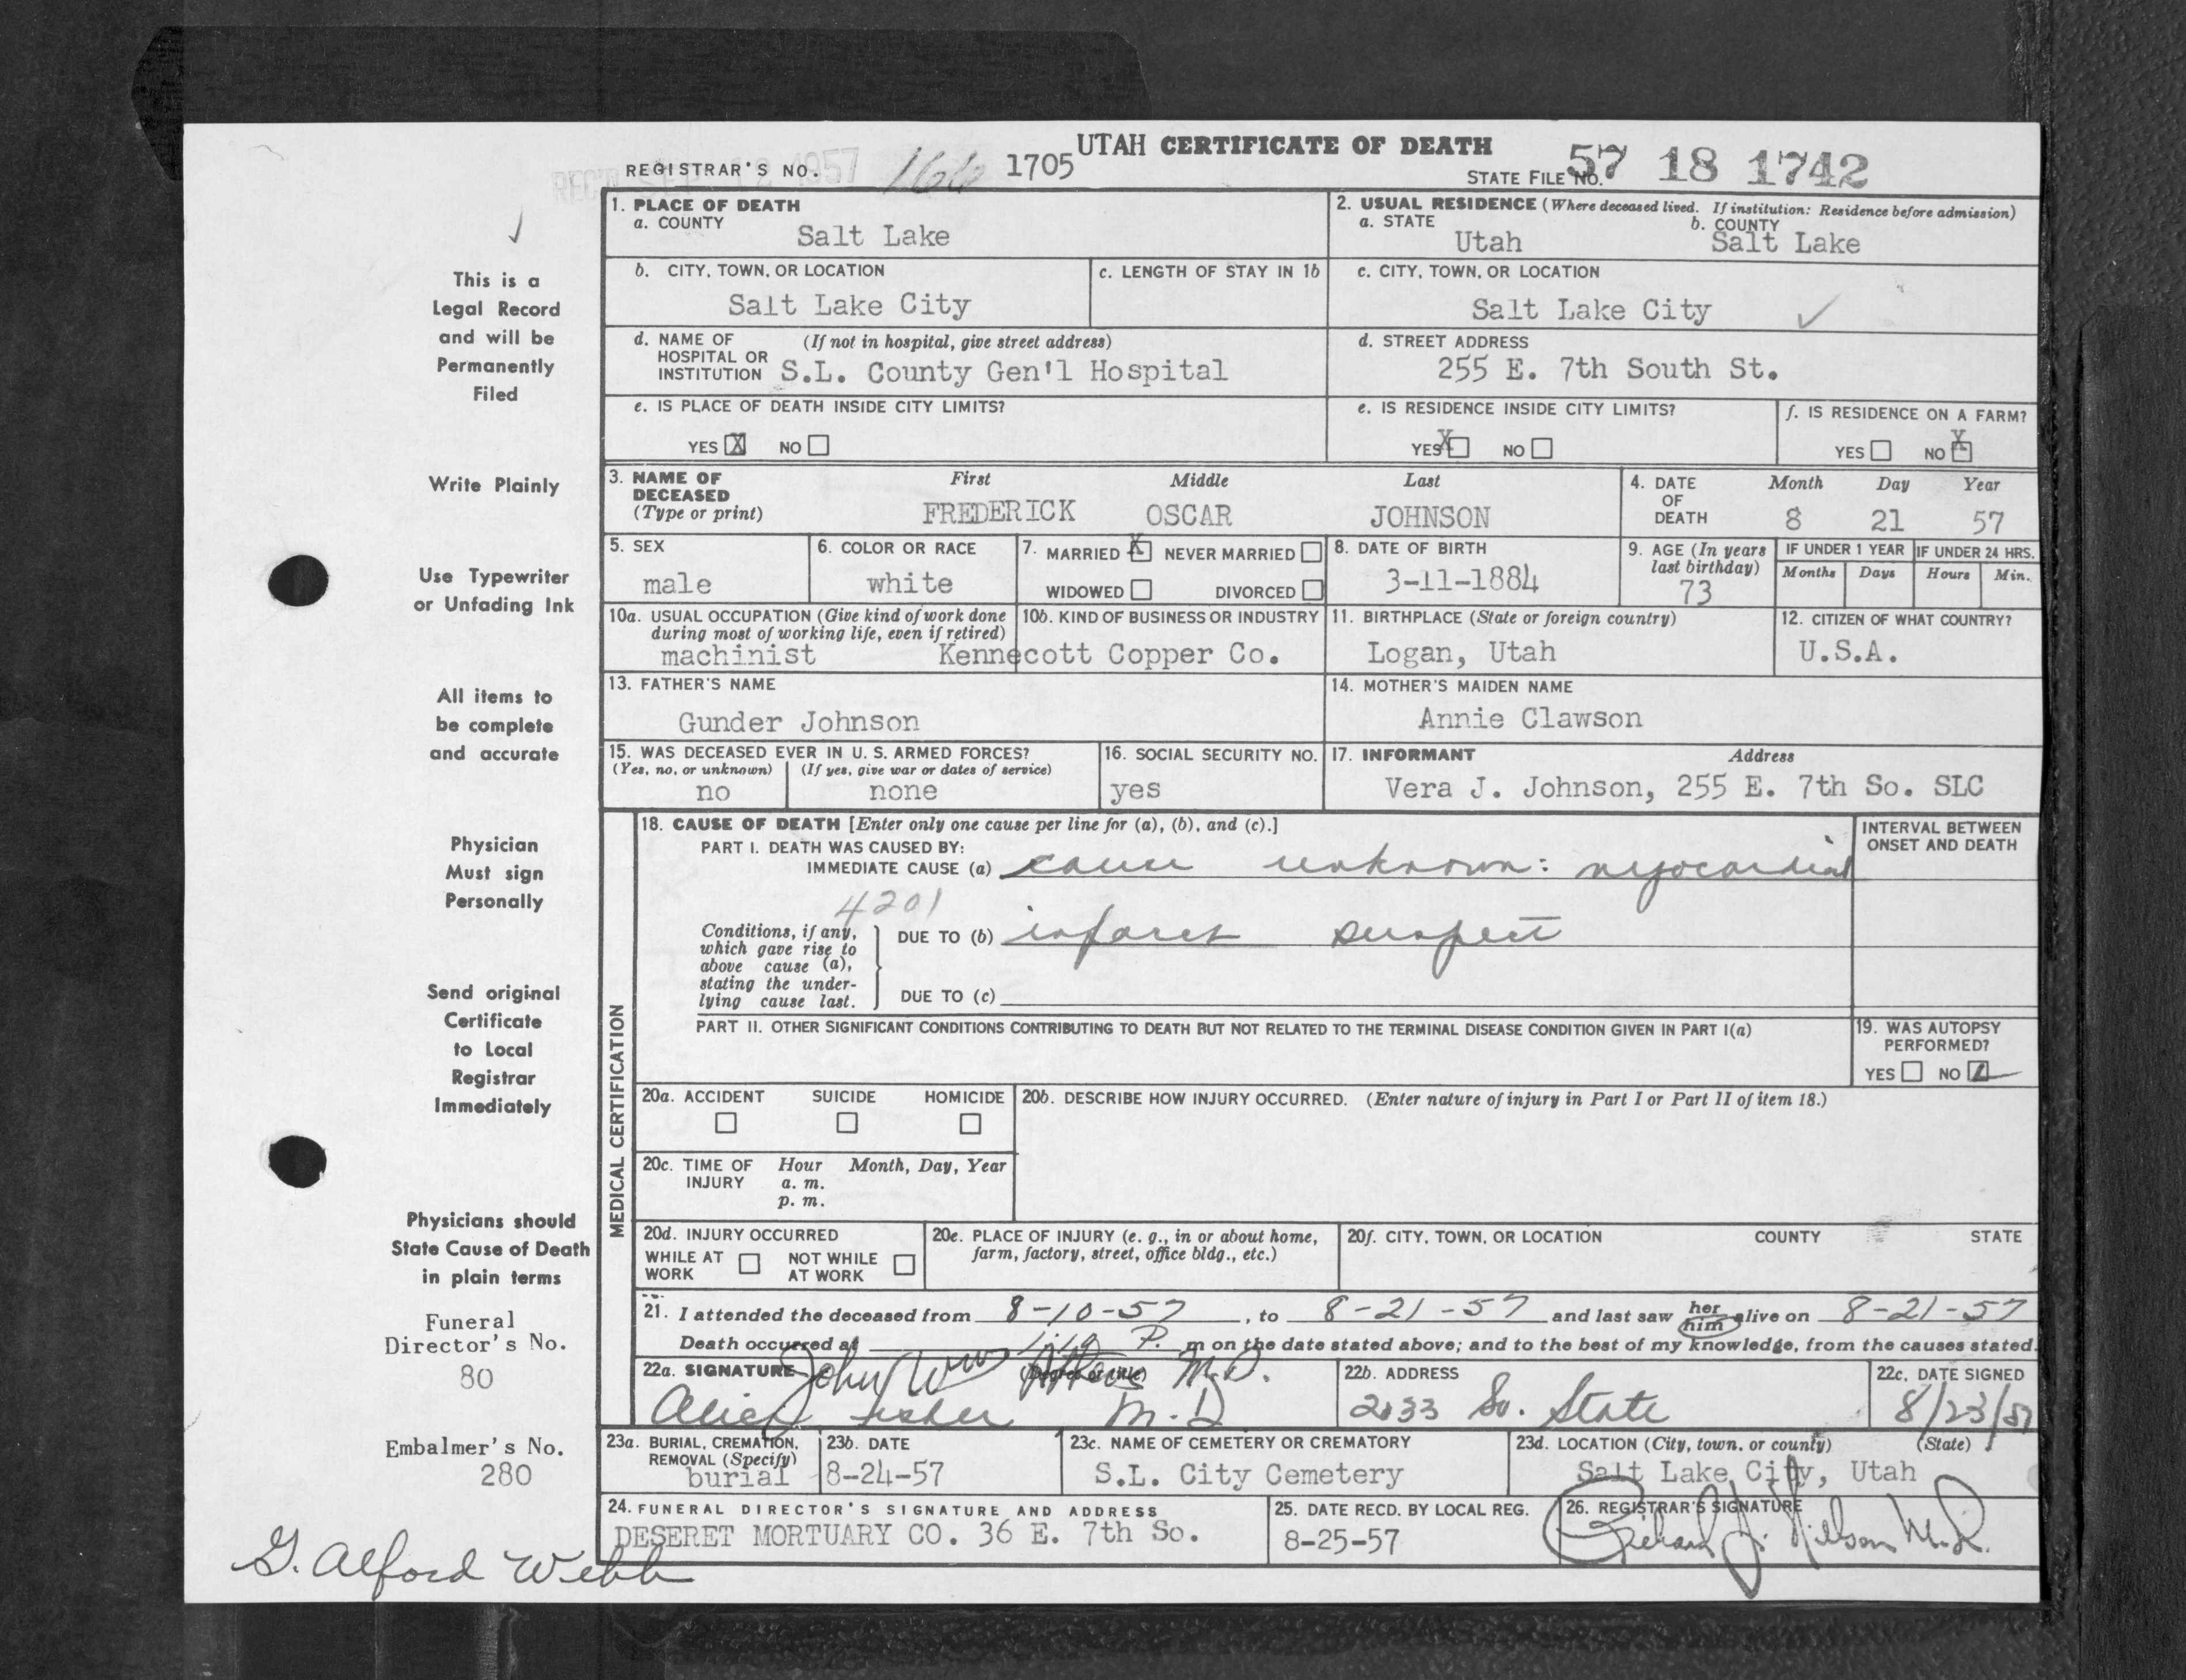 UTAH CERTIFICATE OF DEATH
REGISTRAR'S NO. 166 1705
STATE FILE NO. 57 18 1742
1957
1. PLACE OF DEATH
a. COUNTY
Salt Lake
2. USUAL RESIDENCE (Where deceased lived. If institution: Residence before admission)
a. STATE b. COUNTY
Utah Salt Lake
b. CITY, TOWN, OR LOCATION
Salt Lake City
c. LENGTH OF STAY IN 1b
c. CITY, TOWN, OR LOCATION
Salt Lake City
d. NAME OF (If not in hospital, give street address)
HOSPITAL OR
INSTITUTION S.L. County Gen'l Hospital
d. STREET ADDRESS
255 E. 7th South St.
e. IS PLACE OF DEATH INSIDE CITY LIMITS?
YES X NO
e. IS RESIDENCE INSIDE CITY LIMITS?
YES X NO
f. IS RESIDENCE ON A FARM?
YES NO X
3. NAME OF
DECEASED
(Type or print)
First Middle Last
FREDERICK OSCAR JOHNSON
4. DATE
OF
DEATH
Month Day Year
8 21 57
5. SEX
male
6. COLOR OR RACE
white
7. MARRIED X NEVER MARRIED
WIDOWED DIVORCED
8. DATE OF BIRTH
3-11-1884
9. AGE (In years
last birthday)
73
IF UNDER 1 YEAR
Months Days
IF UNDER 24 HRS.
Hours Min.
10a. USUAL OCCUPATION (Give kind of work done
during most of working life, even if retired)
machinist
10b. KIND OF BUSINESS OR INDUSTRY
Kennecott Copper Co.
11. BIRTHPLACE (State or foreign country)
Logan, Utah
12. CITIZEN OF WHAT COUNTRY?
U.S.A.
13. FATHER'S NAME
Gunder Johnson
14. MOTHER'S MAIDEN NAME
Annie Clawson
15. WAS DECEASED EVER IN U. S. ARMED FORCES?
(Yes, no, or unknown) (If yes, give war or dates of service)
no none
16. SOCIAL SECURITY NO.
yes
17. INFORMANT Address
Vera J. Johnson, 255 E. 7th So. SLC
MEDICAL CERTIFICATION
18. CAUSE OF DEATH [Enter only one cause per line for (a), (b), and (c).]
PART I. DEATH WAS CAUSED BY:
IMMEDIATE CAUSE (a) cause unknown: myocardial
4201
Conditions, if any,
which gave rise to
above cause (a),
stating the under-
lying cause last.
DUE TO (b) infarct suspect
DUE TO (c)
INTERVAL BETWEEN
ONSET AND DEATH
PART II. OTHER SIGNIFICANT CONDITIONS CONTRIBUTING TO DEATH BUT NOT RELATED TO THE TERMINAL DISEASE CONDITION GIVEN IN PART I(a)
19. WAS AUTOPSY
PERFORMED?
YES NO
20a. ACCIDENT SUICIDE HOMICIDE
20b. DESCRIBE HOW INJURY OCCURRED. (Enter nature of injury in Part I or Part II of item 18.)
20c. TIME OF Hour Month, Day, Year
INJURY a. m.
p. m.
20d. INJURY OCCURRED
WHILE AT NOT WHILE
WORK AT WORK
20e. PLACE OF INJURY (e. g., in or about home,
farm, factory, street, office bldg., etc.)
20f. CITY, TOWN, OR LOCATION COUNTY STATE
21. I attended the deceased from 8-10-57, to 8-21-57 and last saw her him alive on 8-21-57
Death occurred at P. m on the date stated above; and to the best of my knowledge, from the causes stated.
22a. SIGNATURE John (Degree or title) M.D.
Alice Fisher M.D
22b. ADDRESS
2033 So. State
22c. DATE SIGNED
8/23/57
23a. BURIAL, CREMATION,
REMOVAL (Specify)
burial
23b. DATE
8-24-57
23c. NAME OF CEMETERY OR CREMATORY
S.L. City Cemetery
23d. LOCATION (City, town, or county) (State)
Salt Lake City, Utah
24. FUNERAL DIRECTOR'S SIGNATURE AND ADDRESS
DESERET MORTUARY CO. 36 E. 7th So.
25. DATE RECD. BY LOCAL REG.
8-25-57
26. REGISTRAR'S SIGNATURE
Richard J. Nilson M.D.
This is a
Legal Record
and will be
Permanently
Filed
Write Plainly
Use Typewriter
or Unfading Ink
All items to
be complete
and accurate
Physician
Must sign
Personally
Send original
Certificate
to Local
Registrar
Immediately
Physicians should
State Cause of Death
in plain terms
Funeral
Director's No.
80
Embalmer's No.
280
G. Alford Webb